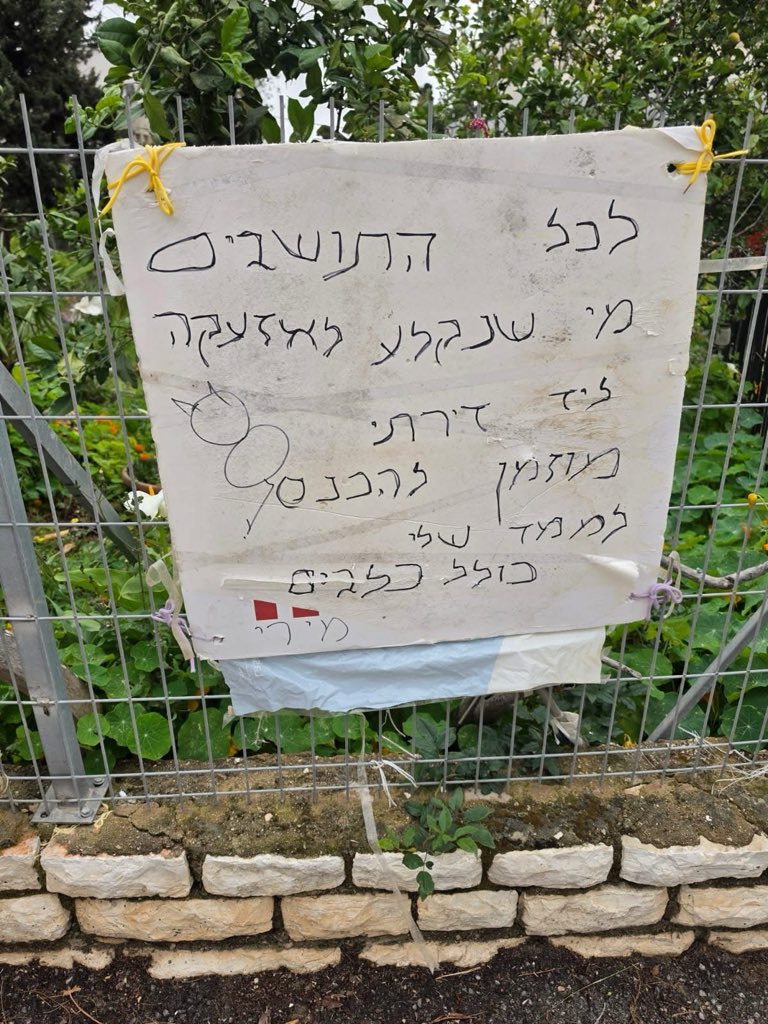 לכל התושבים
מי שנקלע לאזעקה
ליד דירתי
מוזמן להכנס
לממד שלי
כולל כלבים
מירי